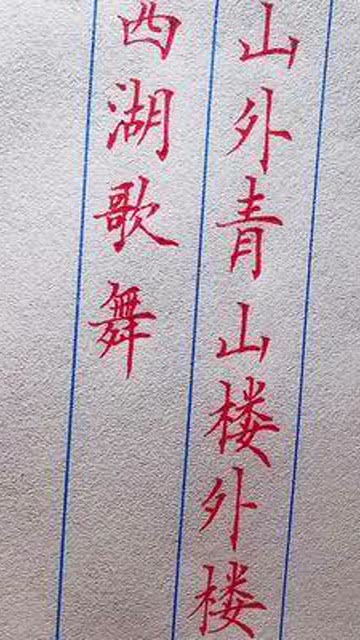 山外青山楼外楼
西湖歌舞